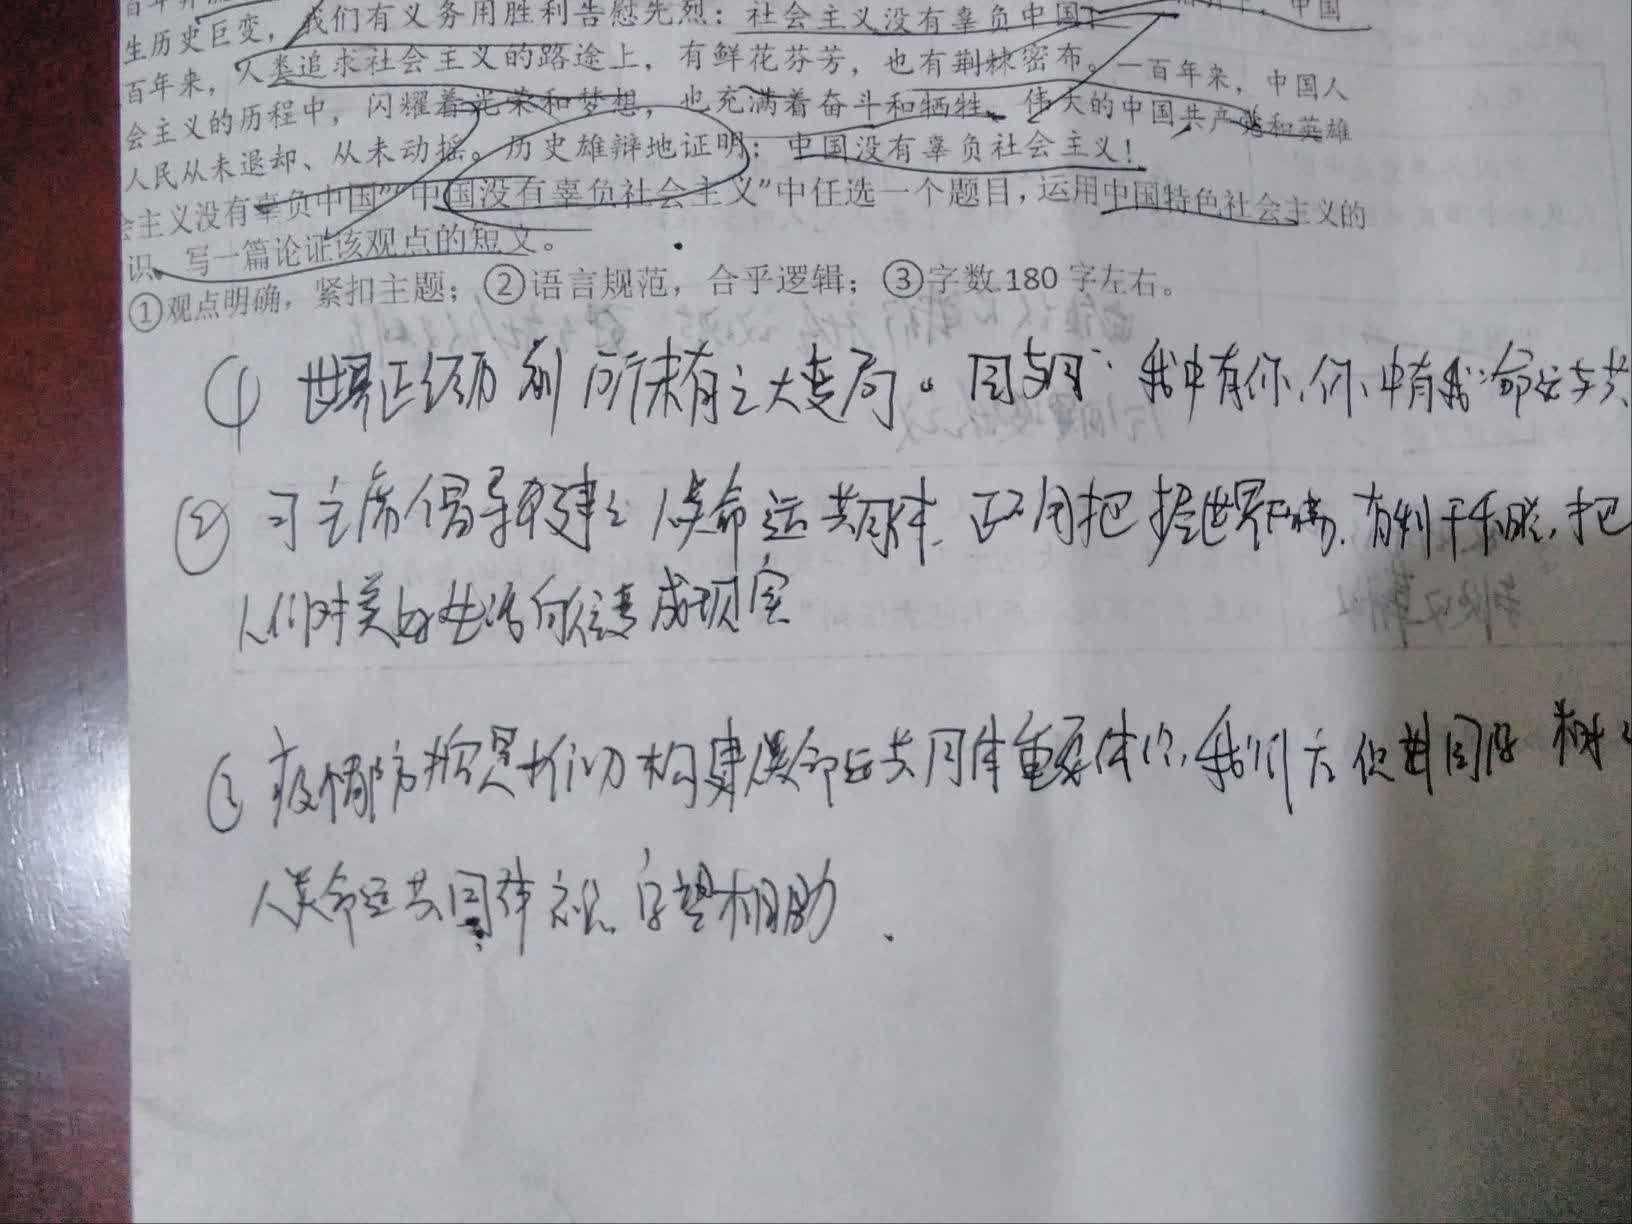 生历史巨变，我们有义务用胜利告慰先烈：社会主义没有辜负中国！
中国
百年来，人类追求社会主义的路途上，有鲜花芬芳，也有荆棘密布。一百年来，中国人
会主义的历程中，闪耀着光荣和梦想，也充满着奋斗和牺牲。伟大的中国共产党和英雄
人民从未退却、从未动摇。历史雄辩地证明：中国没有辜负社会主义！
会主义没有辜负中国”“中国没有辜负社会主义”中任选一个题目，运用中国特色社会主义的
识，写一篇论证该观点的短文。
①观点明确，紧扣主题；②语言规范，合乎逻辑；③字数180字左右。
① 世界正经历前所未有之大变局。国与国 我中有你，你中有我，命运与共
② 习主席倡导建立人类命运共同体，正 把握世界 ，有利于 ，把
人们对美好生活向往变成现实
③ 疫情防控是我们构建人类命运共同体重要体 ，我们
人类命运共同体 守望相助.